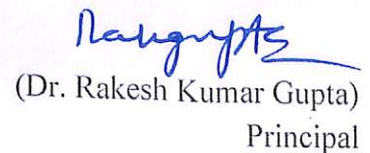 Rakgupta
(Dr. Rakesh Kumar Gupta)
Principal